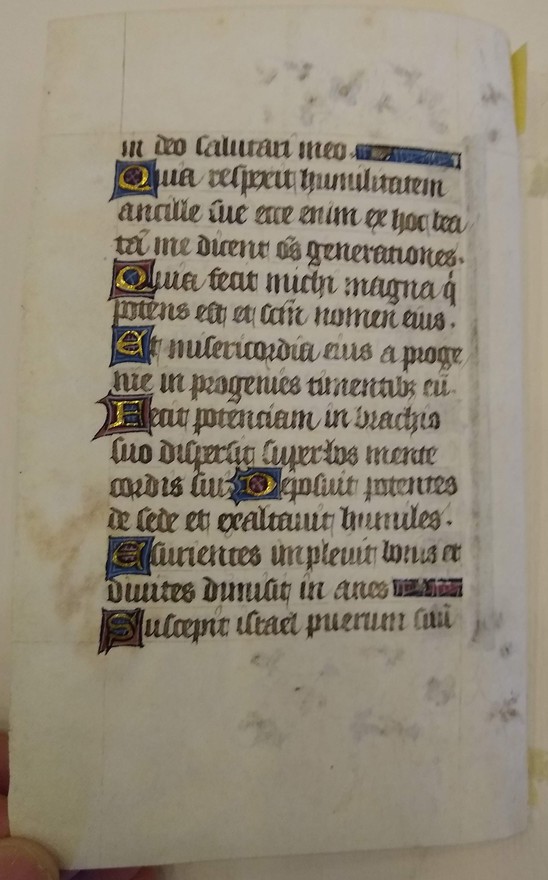 in deo salutari meo
Quia respexit humilitatem
ancille sue ecce enim ex hoc bea
tā me dicent oēs generationes.
Quia fecit michi magna q̇
potens est et scm̄ nomen eius.
Et misericordia eius a proge
nie in progenies timentibꝫ eū.
Fecit potenciam in brachio
suo dispersit superbos mente
cordis sui Deposuit potentes
de sede et exaltauit humiles.
Esurientes impleuit bonis et
diuites dimisit in anes
Suscepit israel puerum suū